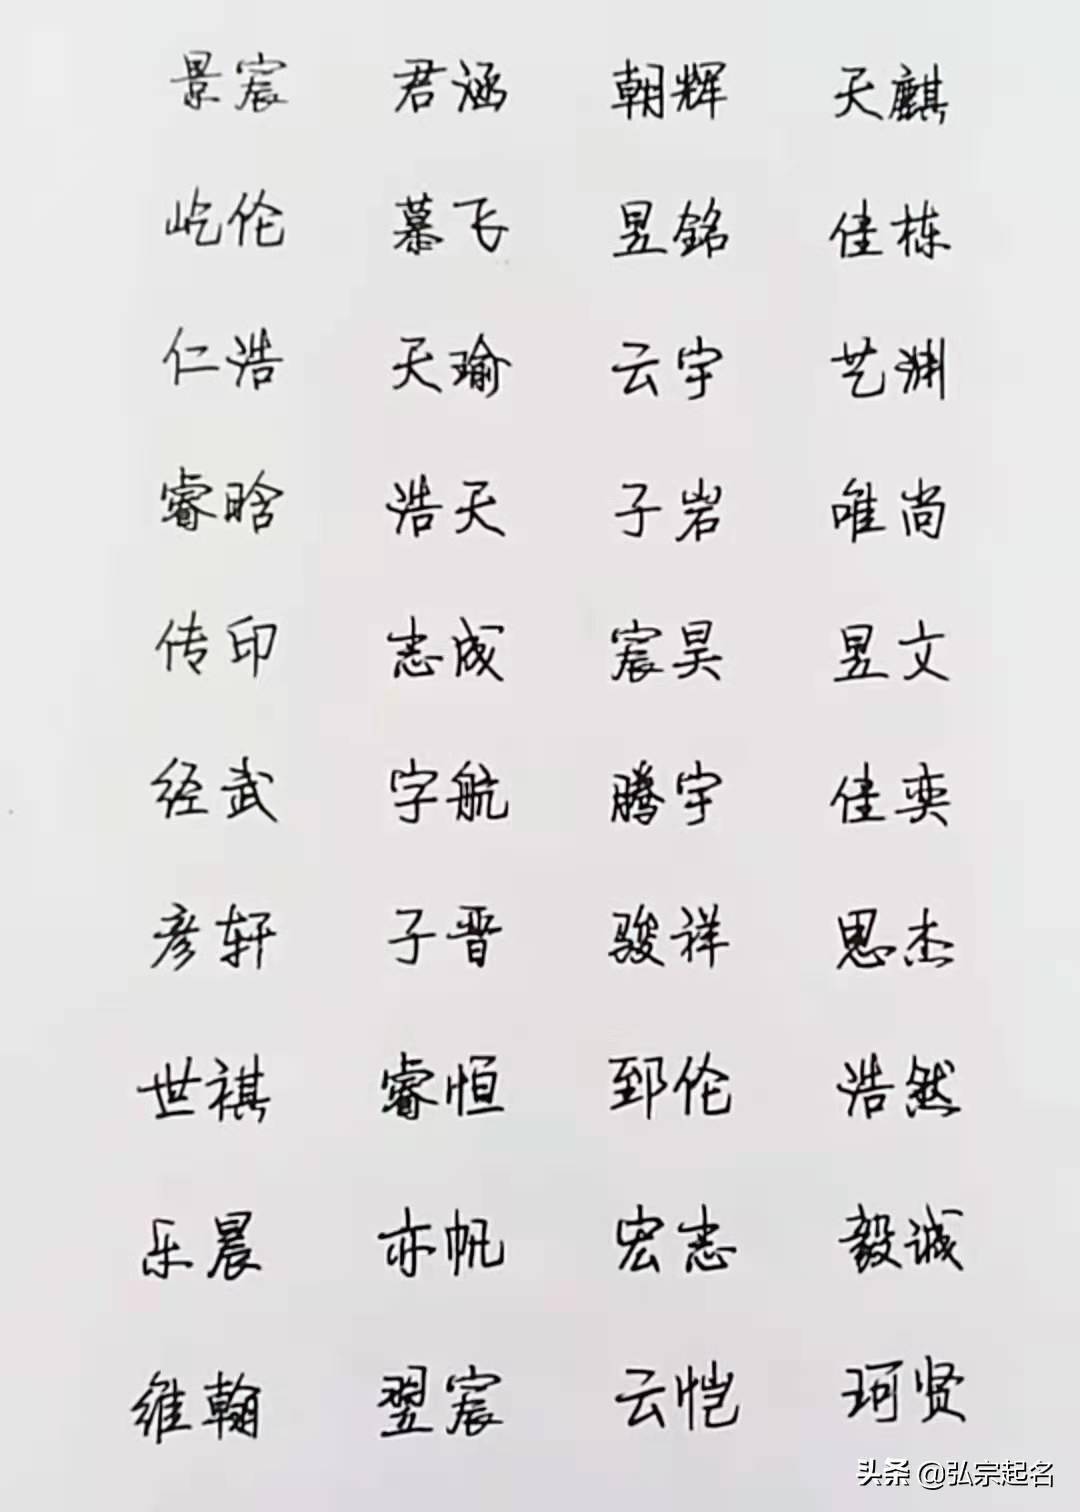 景宸 君涵 朝辉 天麒
屹伦 慕飞 昱铭 佳栋
仁浩 天瑜 云宇 艺渊
睿晗 浩天 子岩 唯尚
传印 志成 宸昊 昱文
经武 宇航 腾宇 佳奕
彦轩 子晋 骏祥 思杰
世祺 睿恒 郅伦 浩然
乐晨 亦帆 宏志 毅诚
维翰 翌宸 云恺 珂贤
头条 @弘宗起名